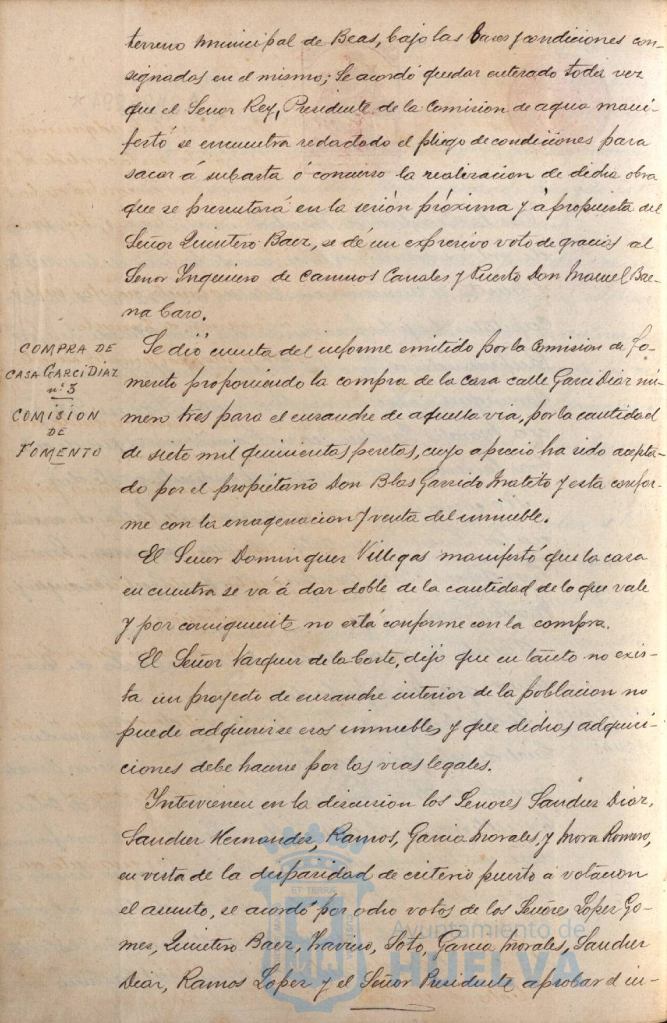 terreno municipal de Beas, bajo las bases y condiciones con-
signados en el mismo; Se acordó quedar enterado toda vez
que el Señor Rey, Presidente de la Comision de agua mani-
festó se encuentra redactado el pliego de condiciones para
sacar á subasta ó concurso la realizacion de dicha obra
que se presentará en la sesión próxima y á propuesta del
Señor Quintero Baez, se dé un expresivo voto de gracias al
Señor Ingeniero de Caminos Canales y Puerto Don Manuel Bae-
na Caro.
COMPRA DE
CASA GARCI DIAZ
nº 3
COMISION
DE
FOMENTO
Se dió cuenta del informe emitido por la Comision de Fo-
mento proponiendo la compra de la casa calle Garci Diaz nú-
mero tres para el ensanche de aquella via, por la cantidad
de siete mil quinientas pesetas, cuyo aprecio ha sido acepta-
do por el propietario Don Blas Garrido Matito y esta confor-
me con la enagenacion y venta del inmueble.
El Señor Dominguez Villegas manifestó que la casa
en cuentra se vá á dar doble de la cantidad de lo que vale
y por consiguiente no está conforme con la compra.
El Señor Vazquez de la Corte, dijo que en tanto no exis-
ta un proyecto de ensanche interior de la poblacion no
puede adquirirse esos inmuebles y que dichas adquisi-
ciones debe hacerse por las vias legales.
Intervienen en la discusion los Señores Sanchez Diaz,
Sanchez Hernandez, Ramos, Garcia Morales, y Mora Romero,
en vista de la disparidad de criterio puesto á votacion
el asunto, se acordó por ocho votos de los Señores Lopez Go-
mez, Quintero Baez, Traviesa, Soto, Garcia Morales, Sanchez
Diaz, Ramos Lopez y el Señor Presidente aprobar el in-
Ayuntamiento de
HUELVA